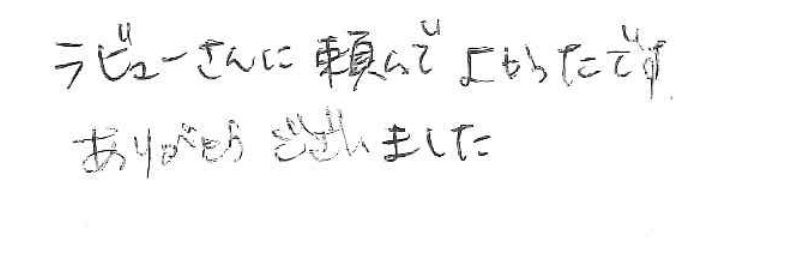 ラビューさんに頼んでよかったです
ありがとうございました